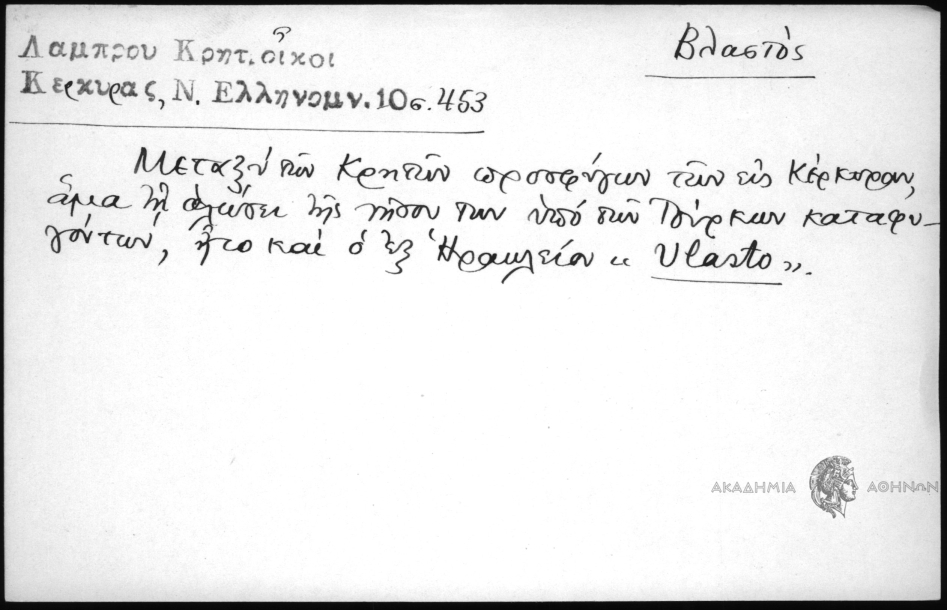 Λαμπρου Κρητ. οἶκοι
Κερκυρας, Ν. Ελληνομν. 10 σ. 453
Βλαστὸς
Μεταξὺ τῶν Κρητῶν προσφύγων τῶν εἰς Κέρκυραν,
ἅμα τῇ ἁλώσει τῆς νήσου των ὑπὸ τῶν Τούρκων καταφυ-
γόντων, ἦτο καὶ ὁ ἐξ Ἡρακλείου « Vlasto ».
ΑΚΑΔΗΜΙΑ ΑΘΗΝΩΝ